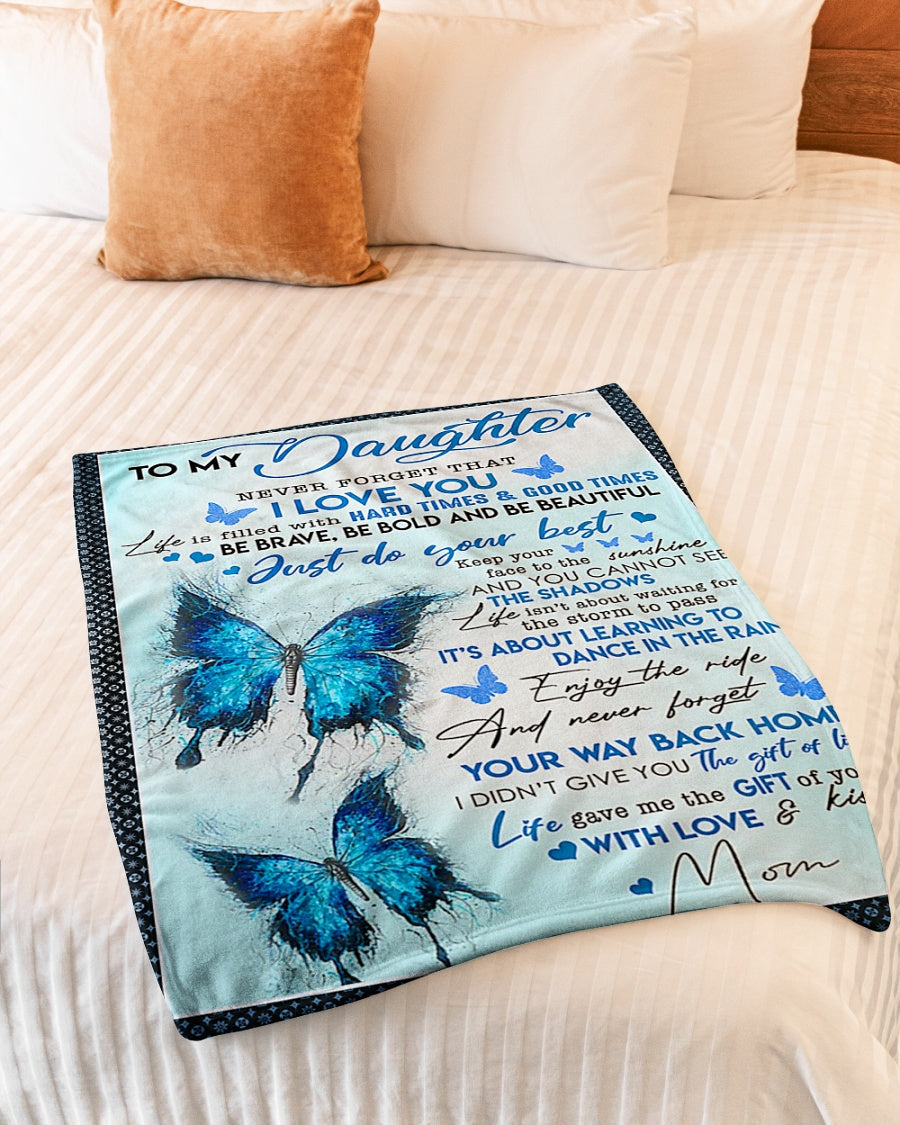 TO MY Daughter
NEVER FORGET THAT
I LOVE YOU
Life is filled with HARD TIMES & GOOD TIMES
BE BRAVE, BE BOLD AND BE BEAUTIFUL
Just do your best
Keep your
face to the sunshine
AND YOU CANNOT SEE
THE SHADOWS
Life isn't about waiting for
the storm to pass
IT'S ABOUT LEARNING TO
DANCE IN THE RAIN
Enjoy the ride
And never forget
YOUR WAY BACK HOME
I DIDN'T GIVE YOU The gift of li
Life gave me the GIFT of yo
WITH LOVE & kis
Mom